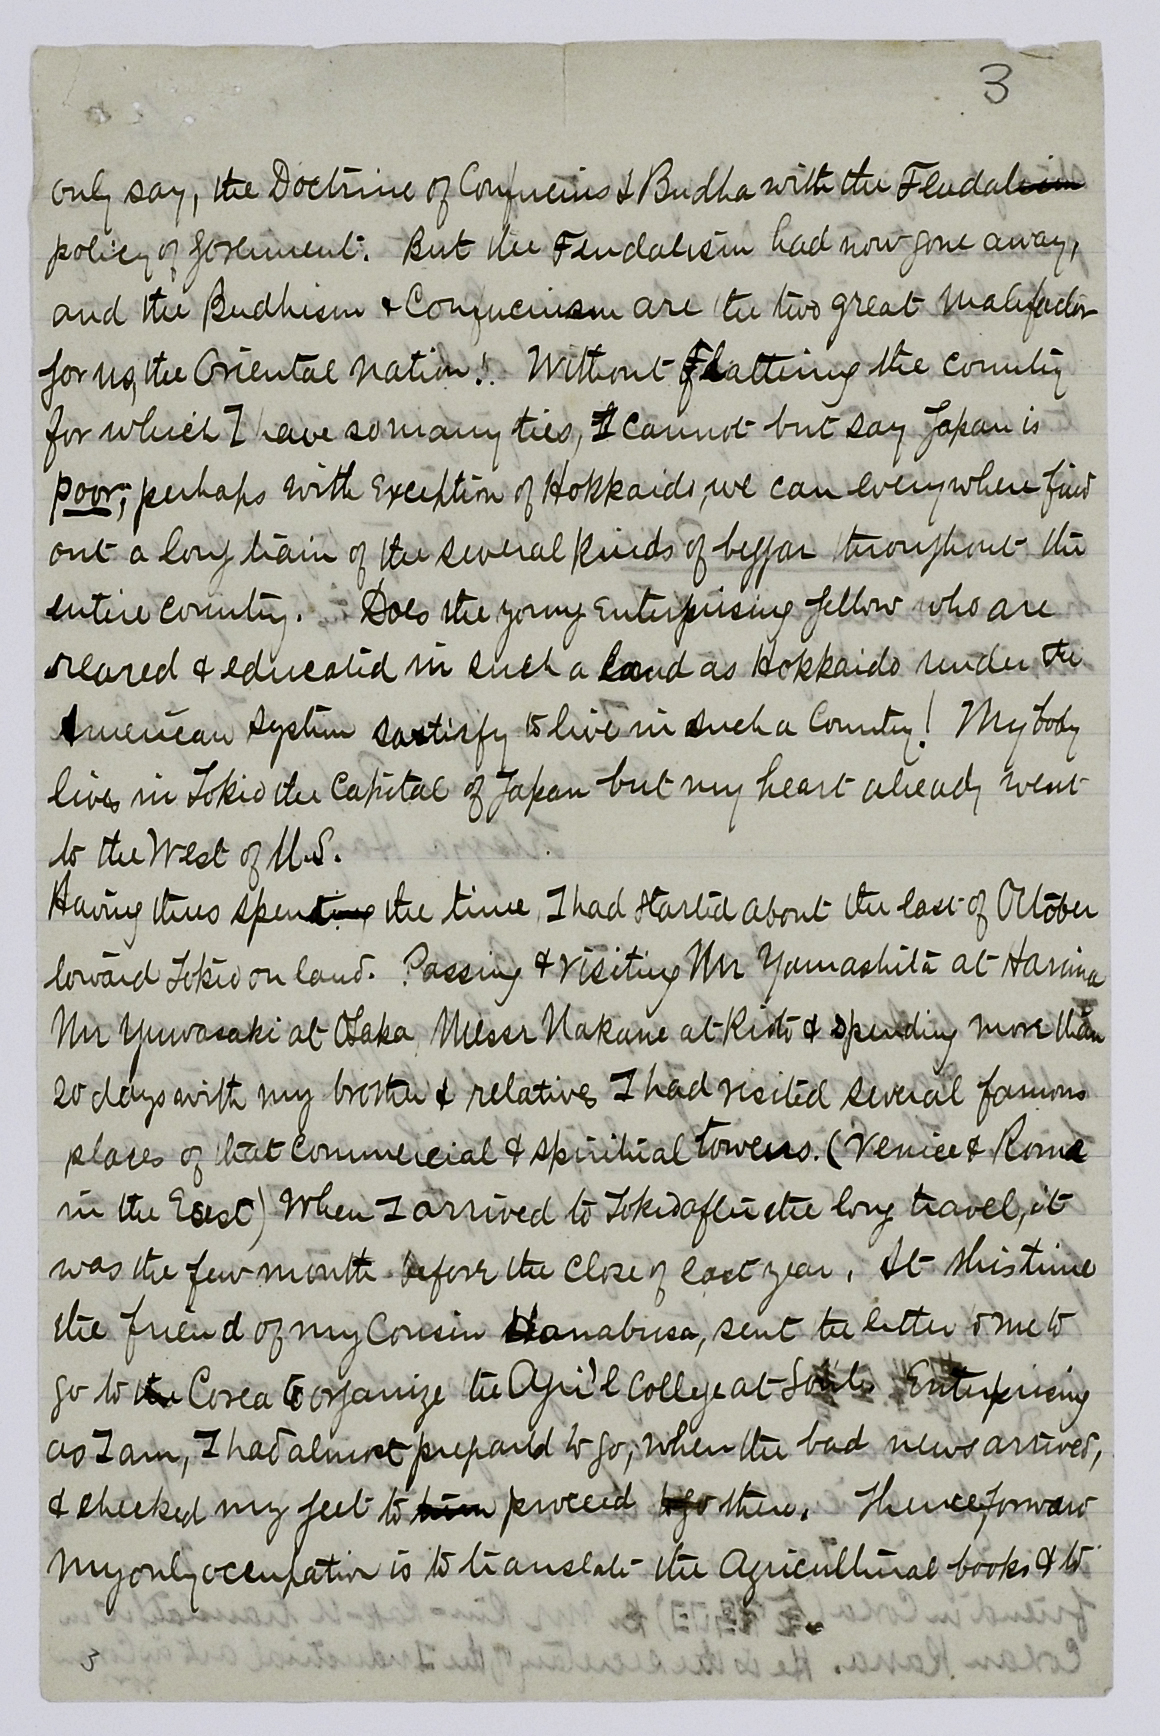 3
only say, the Doctrine of Confucius & Budha with the Feudalism
policy of Goverment. But the Feudalism had now gone away,
and the Budhism & Confucuism are the two great Malifactor
for us, the Oriental nation! Without Flattering the country
for which I have so many ties, I cannot but say Japan is
poor; perhaps with Exception of Hokkaido, we can everywhere find
out a long train of the several kinds of beggar throughout the
entire country. Does the young Enterprising fellow who are
reared & educated in such a land as Hokkaido under the
American System sastisfy to live in such a Country! My body
lives in Tokio the Capital of Japan but my heart already went
to the West of U.S.
Having thus spending the time, I had started about the last of October
toward Tokio on land. Passing & visiting Mr Yamashita at Harima
Mr Yuwasaki at Osaka, Messr Nakane at Kioto & spending more than
20 days with my brother & relatives I had visited several famous
places of that Commercial & spiritual towens. (Venice & Rome
in the East) When I arrived to Tokio after the long travel, it
was the few month before the close of last year. At this time
the friend of my Cousin Hanabusa, sent the letter to me to
go to the Corea to organize the Agri'l College at Enterprising
as I am, I had almost prepared to go; when the bad news arrived,
& checked my feet to proceed to go there. Thenceforward
My only occupation is to translate the Agricultural books & to
3